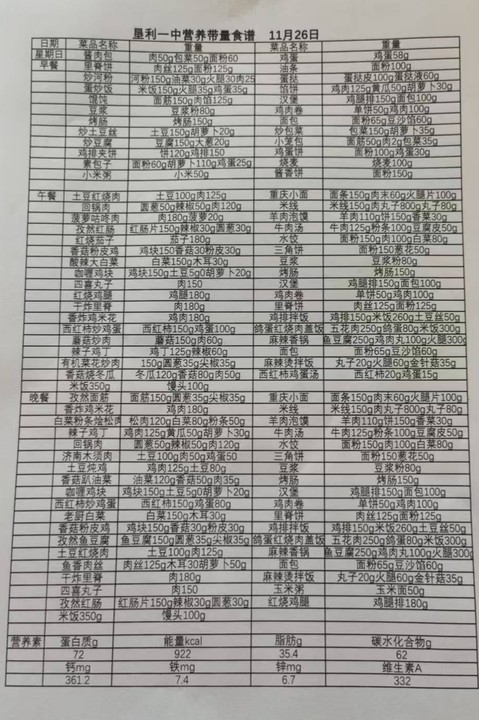 垦利一中营养带量食谱 11月26日
日期 菜品名称 重量 菜品名称 重量
星期日 酱肉包 肉50g包菜50g面粉60 鸡蛋 鸡蛋58g
早餐 里脊饼 肉丝125g面粉125g 油条 面粉100g
炒河粉 河粉150g油菜30g火腿30肉25 蛋挞 蛋挞皮100g蛋挞液60g
蛋炒饭 米饭150g火腿35g鸡蛋35g 馅饼 鸡肉125g黄瓜50g胡萝卜30g
馄饨 面筋150g肉馅125g 汉堡 鸡腿排150g面包100g
豆浆 豆浆粉80g 鸡肉卷 单饼50g鸡肉100g
烤肠 烤肠150g 面包 面粉65g豆沙馅60g
炒土豆丝 土豆150g胡萝卜20g 炒包菜 包菜150g胡萝卜35g
炒豆腐 豆腐150g大葱20g 小笼包 面筋50g肉2g包菜35g
鸡排夹饼 饼120g鸡排150 鸡蛋饼 面粉100g鸡蛋30g
素包子 面粉60g胡萝卜110g鸡蛋25g 烧麦 烧麦100g
小米粥 小米50g 酱香饼 面粉150g
午餐 土豆红烧肉 土豆100g肉125g 重庆小面 面条150g肉末60g火腿片100g
回锅肉 圆葱50g辣椒50g肉120g 米线 米线150g肉丸子800g丸子80g
菠萝咕咚肉 肉180g菠萝20g 羊肉泡馍 羊肉110g饼150g香菜30g
孜然红肠 红肠片150g辣椒30g圆葱30g 牛肉汤 牛肉125g粉条100g豆腐皮50g
红烧茄子 茄子180g 水饺 面粉150g肉100g白菜80g
香菇粉皮鸡 鸡块150g香菇30粉皮30g 三角饼 面粉150g葱花50g
酸辣大白菜 白菜150g木耳30g 豆浆 豆浆粉80g
咖喱鸡块 鸡块150g土豆5g0胡萝卜20g 烤肠 烤肠150g
四喜丸子 肉150 汉堡 鸡腿排150g面包100g
红烧鸡腿 鸡腿180g 鸡肉卷 单饼50g鸡肉100g
干炸里脊 肉180g 里脊饼 肉丝125g面粉125g
香炸鸡米花 鸡肉180g 鸡排拌饭 鸡排150g米饭260g土豆丝50g
西红柿炒鸡蛋 西红柿150g鸡蛋100g 鸽蛋红烧肉盖饭 五花肉250g鸽蛋80g米饭300g
蘑菇炒肉 蘑菇150g肉60g 麻辣香锅 鱼豆腐250g鸡肉丸100g火腿300g
辣子鸡丁 鸡丁125g辣椒60g 面包 面粉65g豆沙馅60g
有机菜花炒肉 150g圆葱35g尖椒35g 麻辣烫拌饭 丸子20g火腿60g金针菇35g
香菇烧冬瓜 冬瓜120g香菇80g肉50g 西红柿鸡蛋汤 西红柿20g鸡蛋15g
米饭350g 馒头100g
晚餐 孜然面筋 面筋150g圆葱35g尖椒35g 重庆小面 面条150g肉末60g火腿片100g
香炸鸡米花 鸡肉180g 米线 米线150g肉丸子800g丸子80g
白菜粉条烩松肉 松肉120g白菜80g粉条50g 羊肉泡馍 羊肉110g饼150g香菜30g
辣子鸡丁 鸡肉125g黄瓜50g胡萝卜30g 牛肉汤 牛肉125g粉条100g豆腐皮50g
回锅肉 圆葱50g辣椒50g肉120g 水饺 面粉150g肉100g白菜80g
济南木须肉 土豆100g肉50g鸡蛋50 三角饼 面粉150葱花50g
土豆炖鸡 鸡肉125g土豆80g 豆浆 豆浆粉80g
香菇趴油菜 油菜120g香菇50g肉35g 烤肠 烤肠150g
咖喱鸡块 鸡块150g土豆5g0胡萝卜20g 汉堡 鸡腿排150g面包100g
西红柿炒鸡蛋 西红柿150g鸡蛋80g 鸡肉卷 单饼50g鸡肉100g
老厨白菜 白菜150g木耳30g 里脊饼 肉丝125g面粉125g
香菇粉皮鸡 鸡块150g香菇30g粉皮30g 鸡排拌饭 鸡排150g米饭260g土豆丝50g
孜然鱼豆腐 鱼豆腐150g圆葱35g尖椒35g 鸽蛋红烧肉盖饭 五花肉250g鸽蛋80g米饭300g
土豆红烧肉 土豆100g肉125g 麻辣香锅 鱼豆腐250g鸡肉丸100g火腿300g
鱼香肉丝 肉丝125g木耳30胡萝卜50g 面包 面粉65g豆沙馅60g
干炸里脊 肉180g 麻辣烫拌饭 丸子20g火腿60g金针菇35g
四喜丸子 肉150 玉米粥 玉米面50g
孜然红肠 红肠片150g辣椒30g圆葱30g 红烧鸡腿 鸡腿排180g
米饭350g 馒头100g
营养素 蛋白质g 能量kcal 脂肪g 碳水化合物g
72 922 35.4 62
钙mg 铁mg 锌mg 维生素A
361.2 7.4 6.7 332